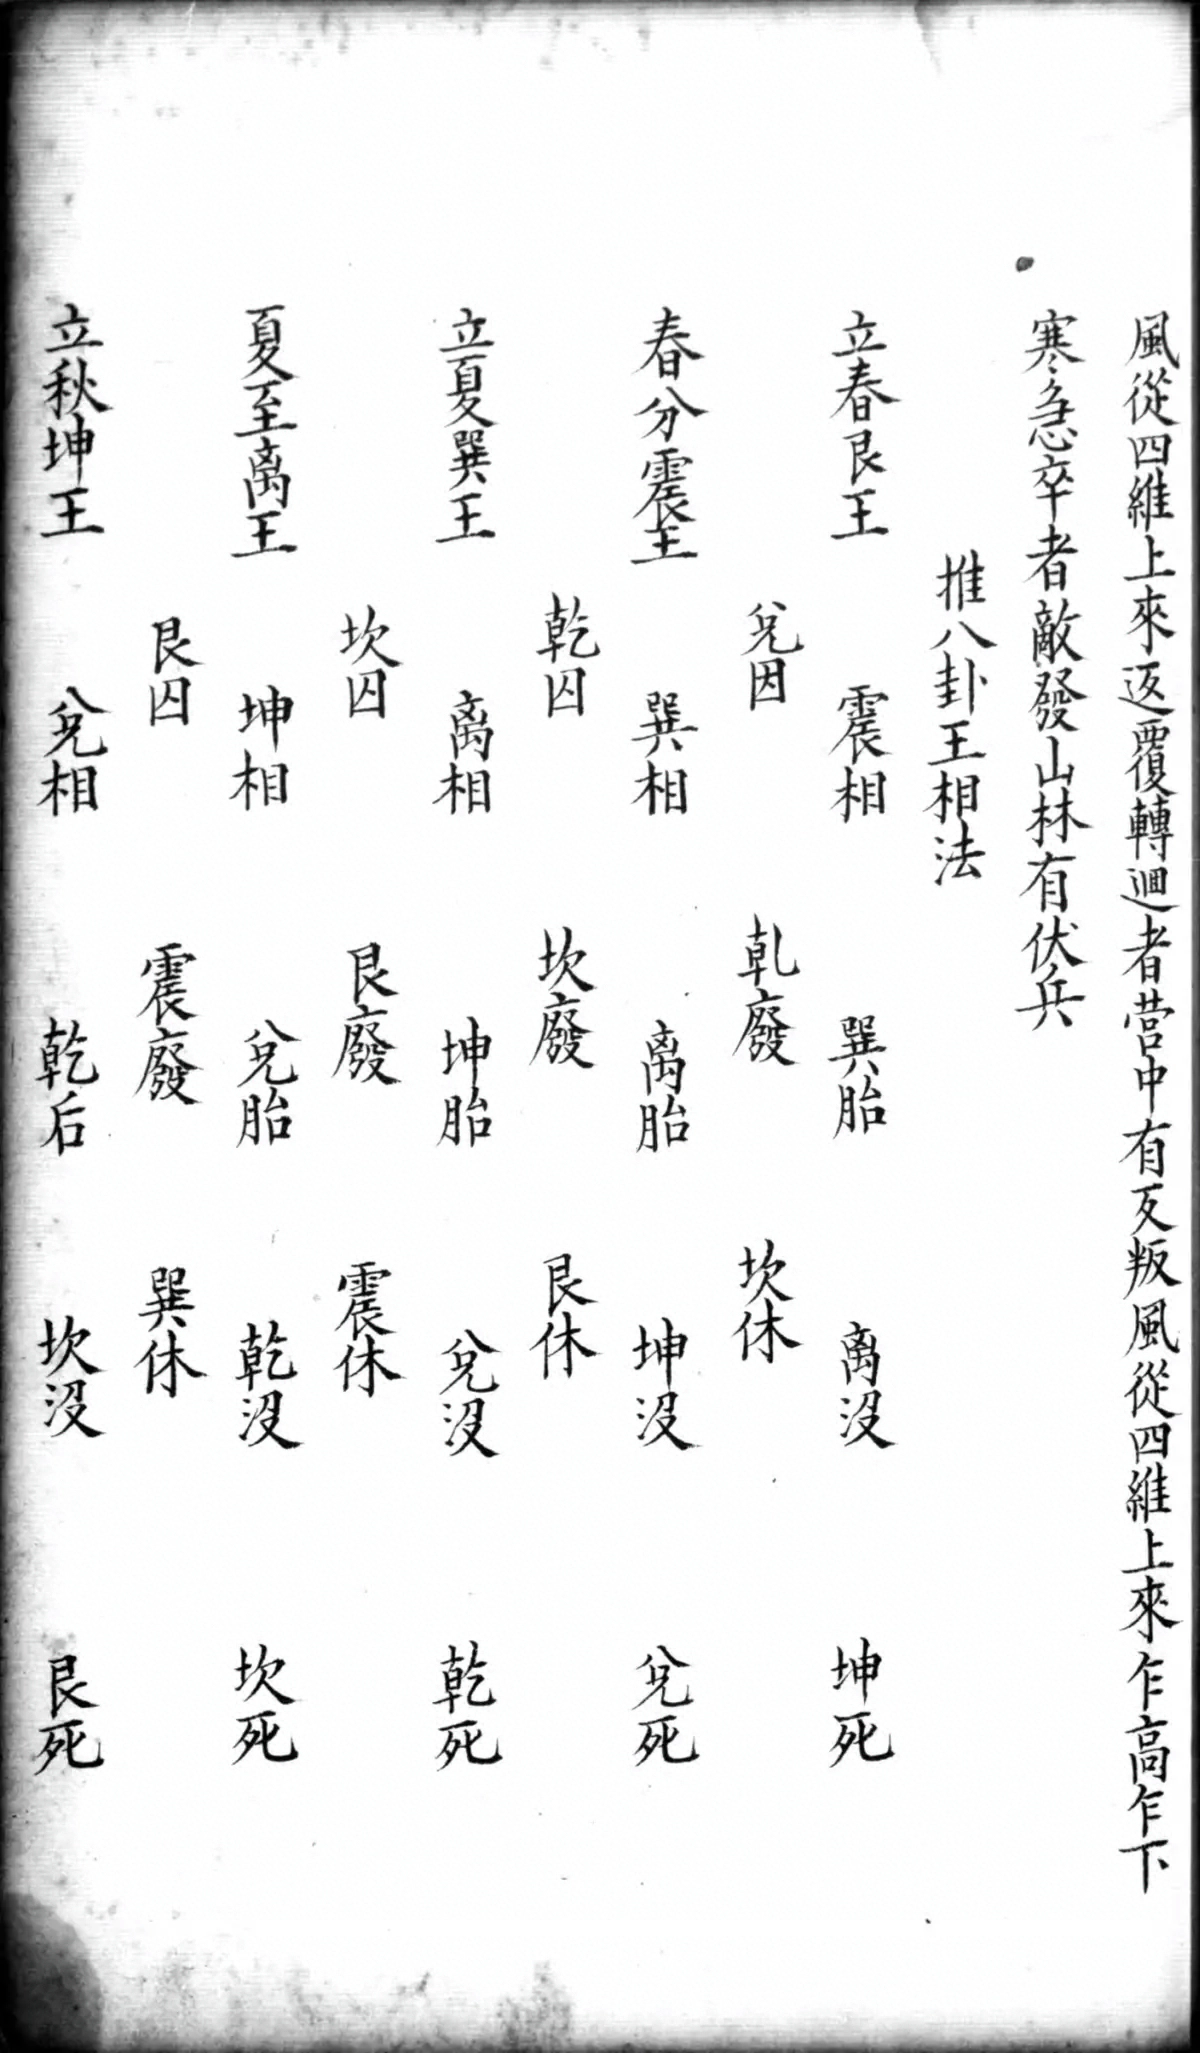 風從四維上來返覆轉迴者营中有叐叛風從四維上來乍高乍下
寒急卒者敵發山林有伏兵
推八卦王相法
立春艮王 震相 巽胎 离沒 坤死
兌因 乹廢 坎休
春分震王 巽相 离胎 坤沒 兌死
乾囚 坎廢 艮休
立夏巽王 离相 坤胎 兌沒 乾死
坎囚 艮廢 震休
夏至离王 坤相 兌胎 乾沒 坎死
艮囚 震廢 巽休
立秋坤王 兌相 乾后 坎沒 艮死